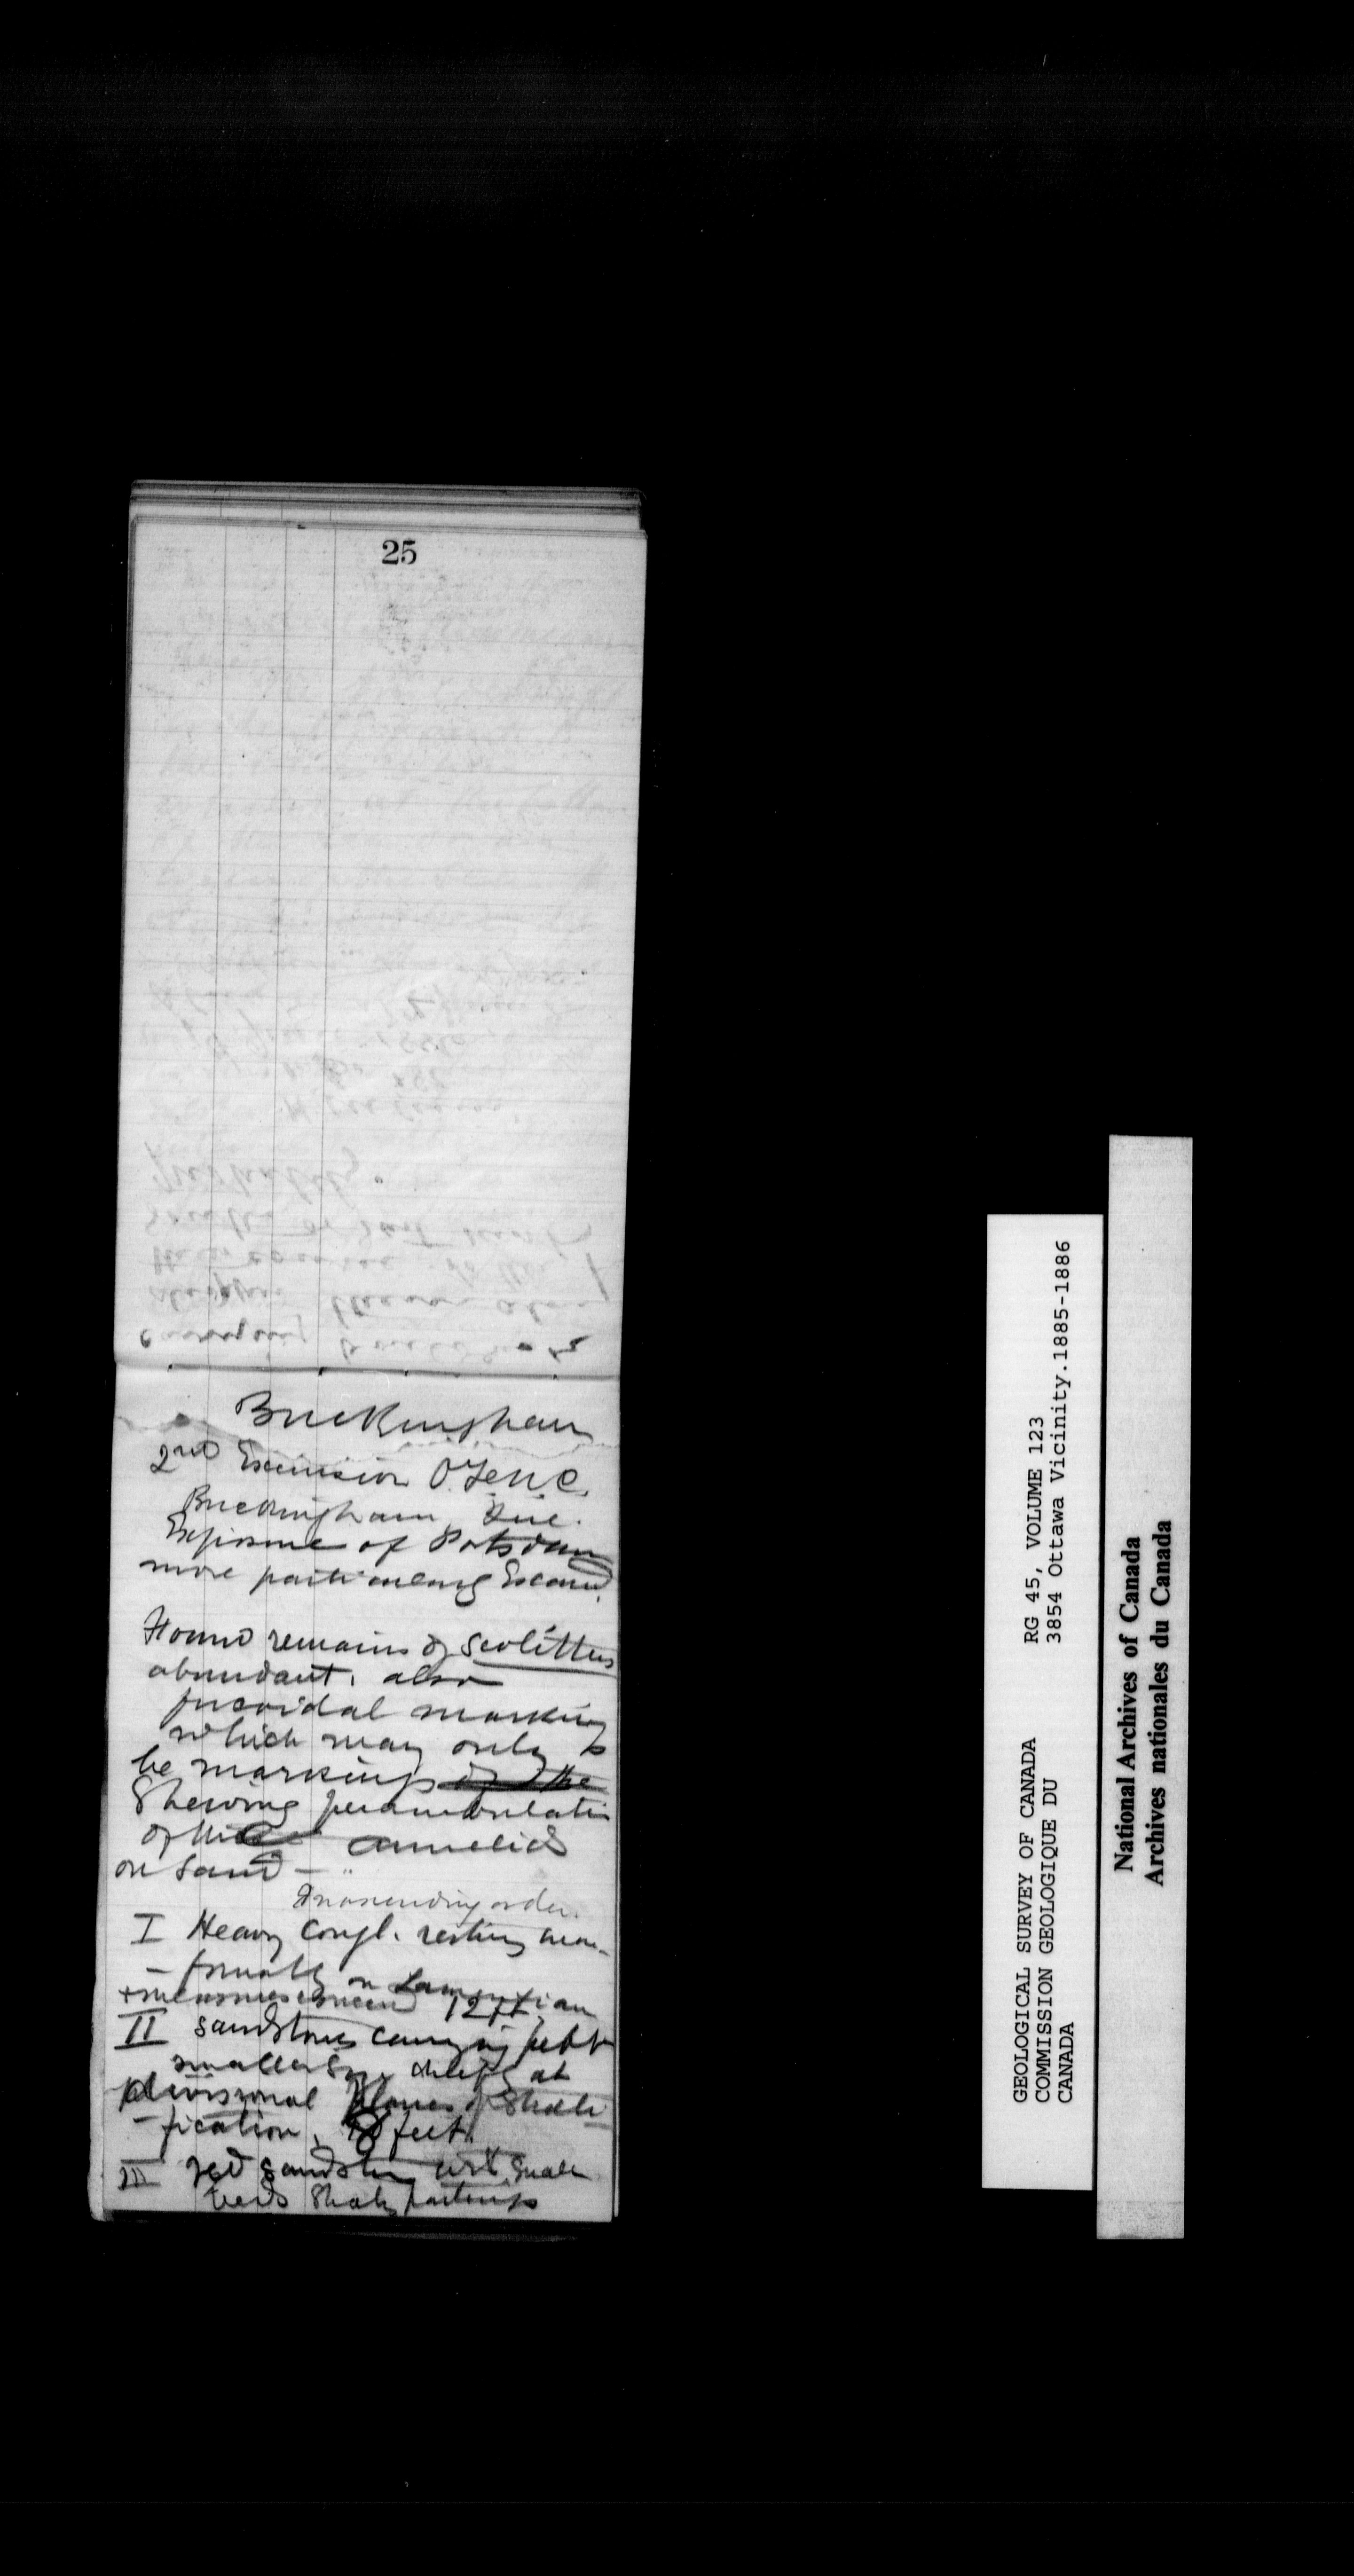 25
Buckingham
2nd Excursion O.F.N.C.
Buckingham, Que.
Exposure of Potsdam
more particularly
Found remains of Scolithus
abundant. also
fucoidal markings
which may only
be markings of the
Shewing perambulatio
of the annelids
on sand —
In ascending order.
I Heavy congl. resting uncon-
- formably on Laurentian
12 ft.
II sandstones carrying pebb
smaller size chiefly at
divisional planes of strati
- fication, feet.
III red sandstone with small
beds shaly partings
GEOLOGICAL SURVEY OF CANADA RG 45, VOLUME 123
COMMISSION GEOLOGIQUE DU 3854 Ottawa Vicinity.1885-1886
CANADA
National Archives of Canada
Archives nationales du Canada